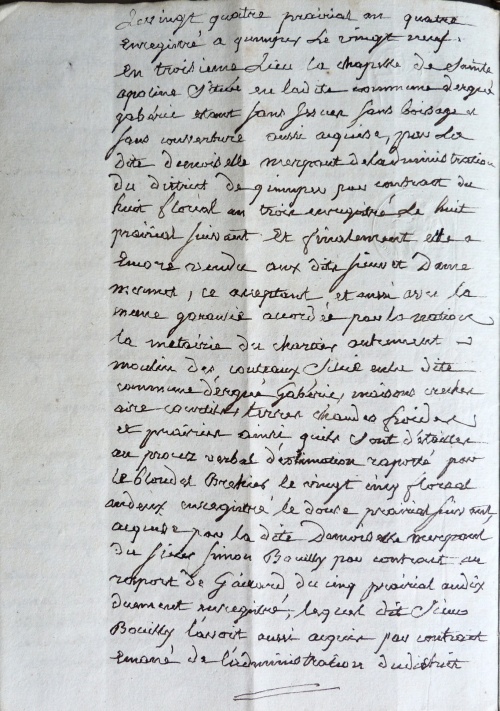 Le vingt quatre prairial an quatre
enregistré a quimper Le vingt neuf.
en troisieme Lieu la chapelle de Sainte
apoline Situé en ladite commune d'ergué
gabéric etant sans Issues sans boisage et
sans couverture aussi acquise, par La
dite demoiselle merpaut de Ladministration
du district de quimper par contrat du
huit floréal an trois enregistré Le huit
prairial suivant Et finalement elle a
Encore vendu aux dits sieur et Dame
, ce acceptant, et aussi avec la
meme garantie accordée par la nation
la métairie du chartier autrement
moulin des couteaux Situé en la dite
commune d'ergué Gabéric, maisons creches
aire courtils, terres chaudes froides
et prairies ainsi quils sont détaillés
au procez verbal d'estimation raporté par
Le Blond et le vingt cinq floréal
an deux enregistré le douze prairial suivant,
acquise par la dite Demoiselle merpaut
du sieur Simon Bouilly par contrant au
raport de Gaillard du cinq prairial an dix
duement enregistré, lequel dit Sieur
Bouilly l'avoit aussi acquis par contrant
émané de l'administration du district